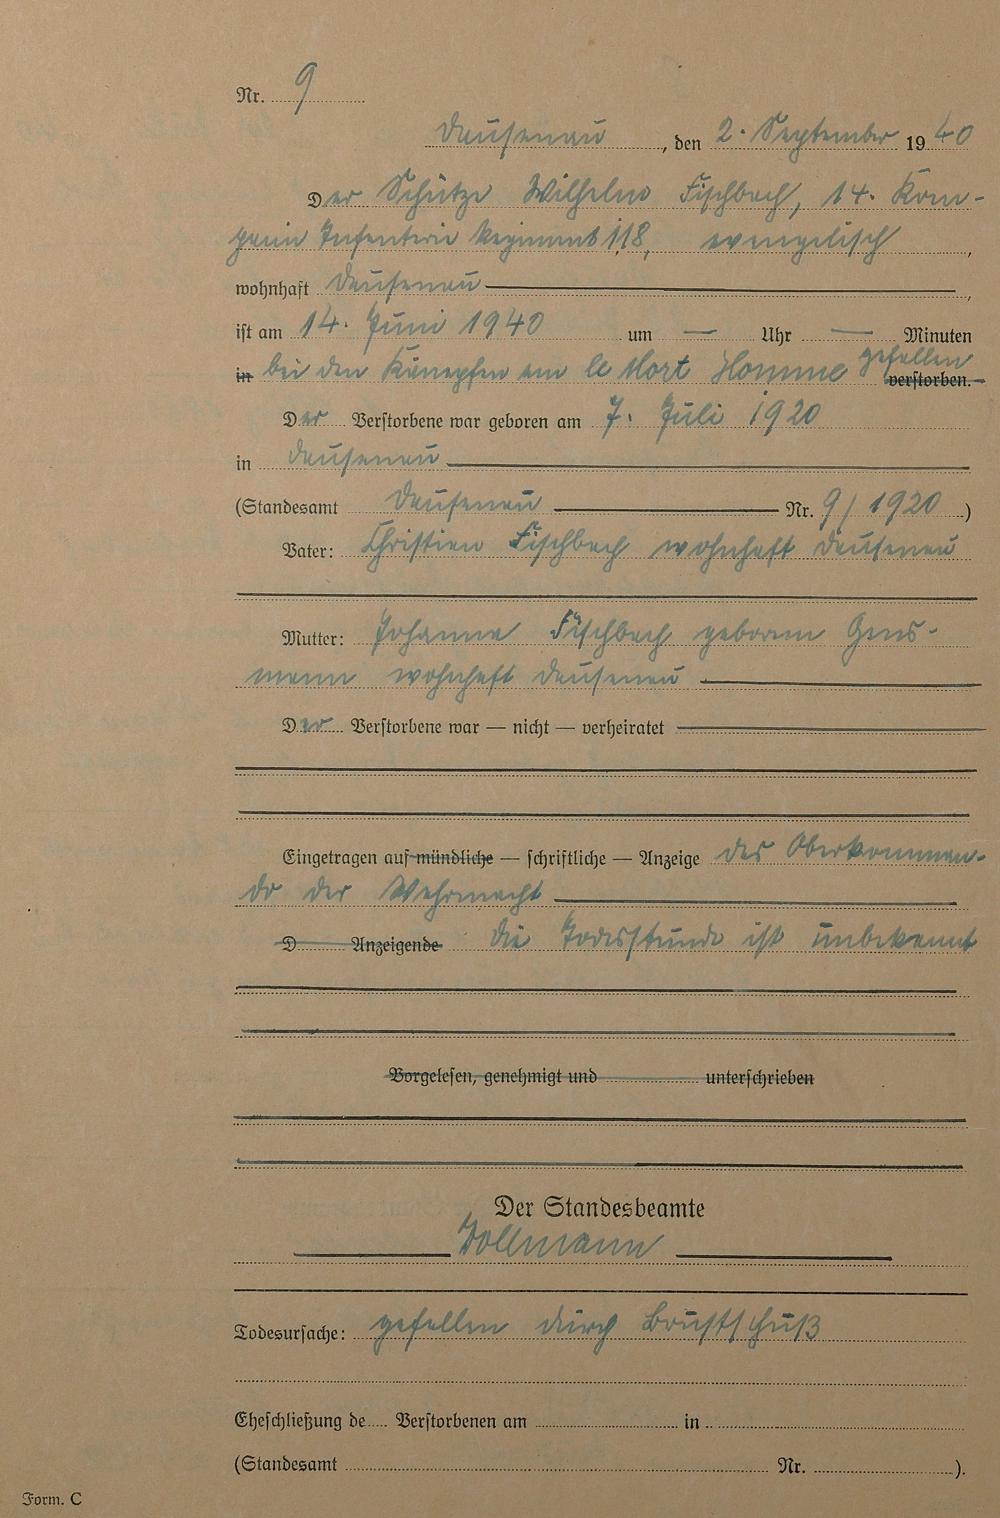 Nr. 9
Dausenau, den 2. September 1940
Der Schütze Wilhelm Fischbach, 14. Kom-
panie Infanterie Regiment 118, evangelisch,
wohnhaft Dausenau,
ist am 14. Juni 1940 um — Uhr — Minuten
in bei den Kämpfen am le Mort Homme gefallen verstorben.
Der Verstorbene war geboren am 7. Juli 1920
in Dausenau
(Standesamt Dausenau Nr. 9/1920)
Vater: Christian Fischbach wohnhaft Dausenau
Mutter: Johanna Fischbach geborene Gens-
mann wohnhaft Dausenau
Der Verstorbene war — nicht — verheiratet
Eingetragen auf mündliche — schriftliche — Anzeige des Oberkomman-
do der Wehrmacht
D Anzeigende die Todesstunde ist unbekannt
Vorgelesen, genehmigt und unterschrieben
Der Standesbeamte
Todesursache: gefallen durch Brustschuß
Eheschließung de Verstorbenen am in
(Standesamt Nr. ).
Form. C